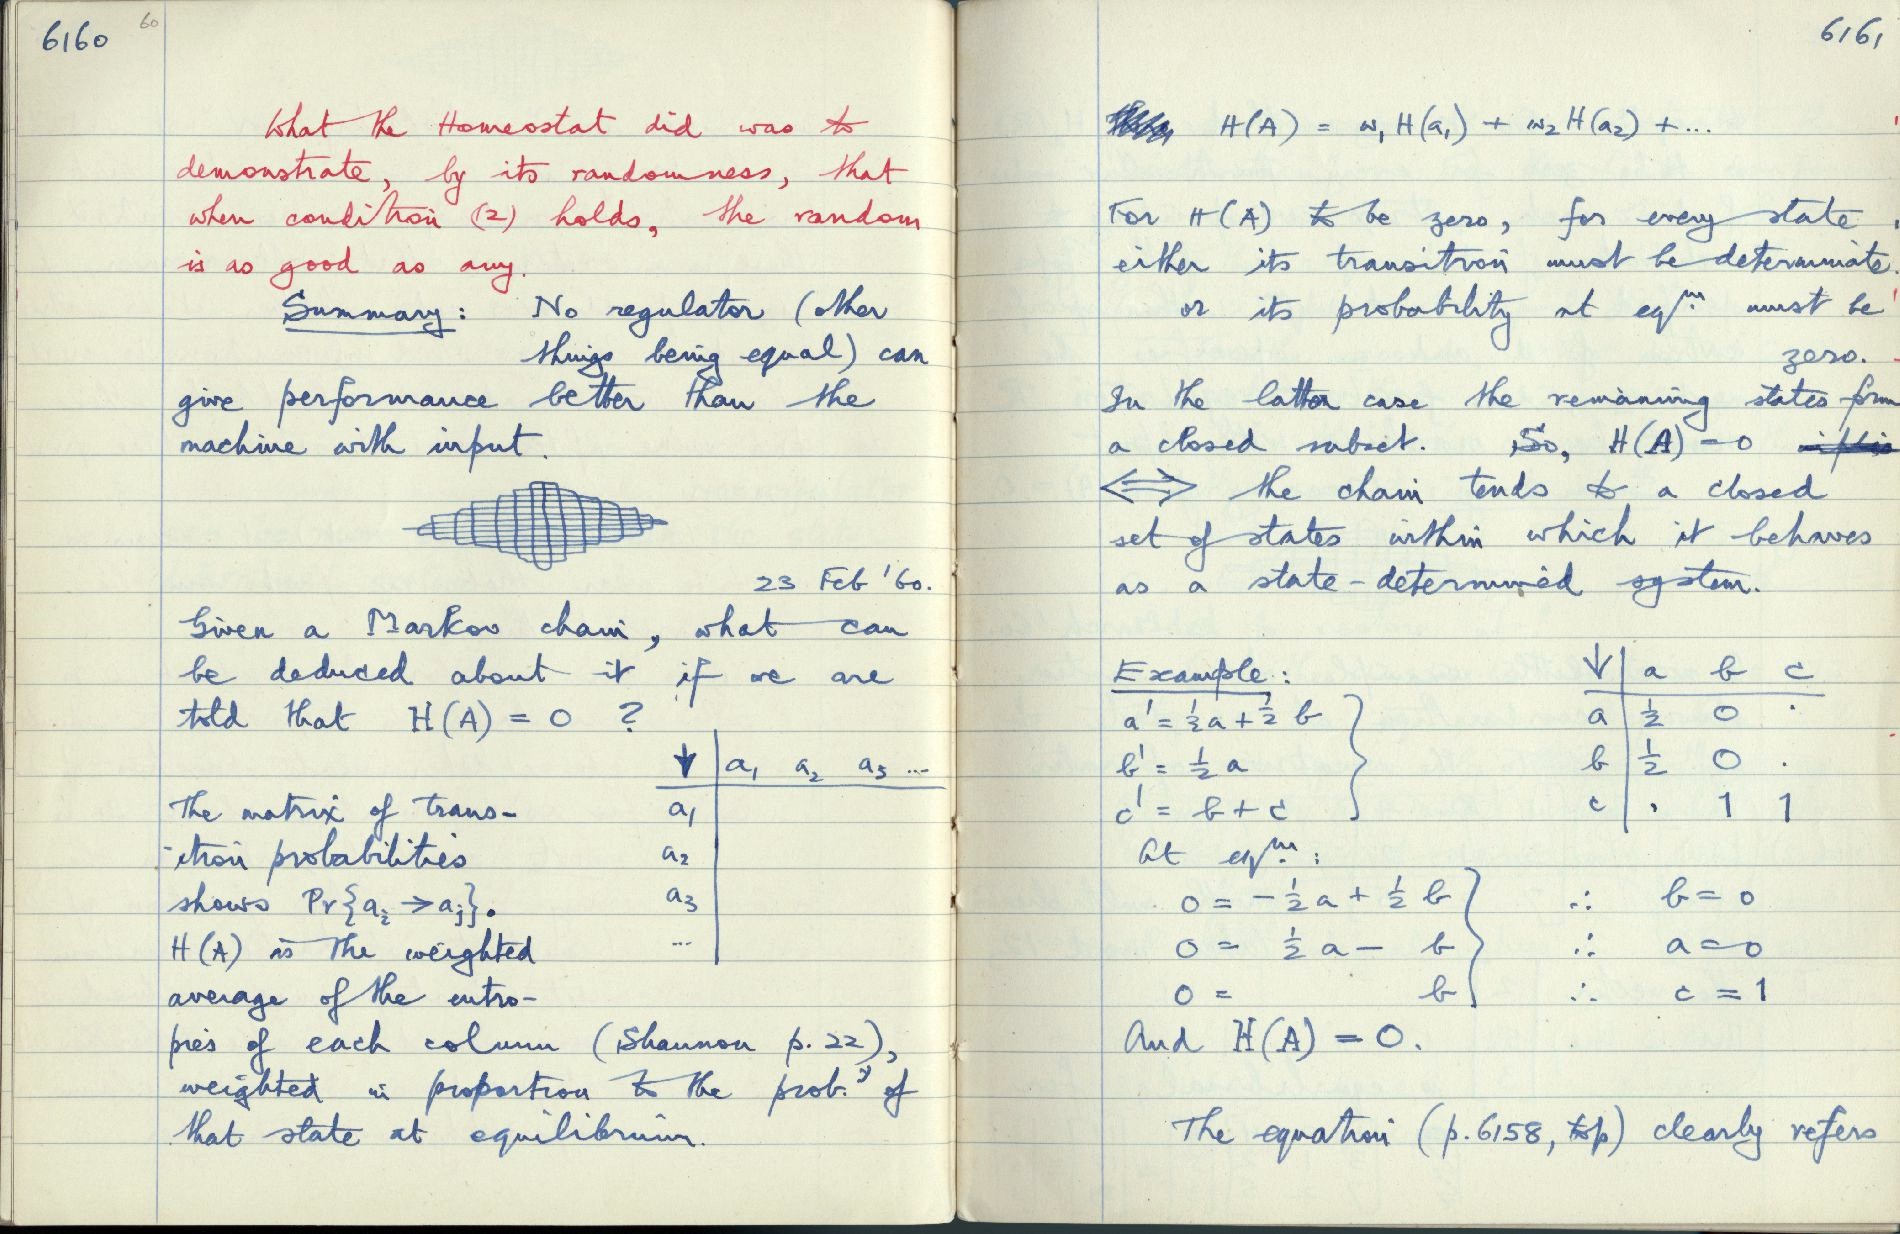 6160
60
What the Homeostat did was to
demonstrate, by its randomness, that
when condition (2) holds, the random
is as good as any.
Summary: No regulator (other
things being equal) can
give performance better than the
machine with input.
23 Feb '60.
Given a Markov chain, what can
be deduced about it if we are
told that H(A) = 0 ?
↓ a₁ a₂ a₃ ...
The matrix of trans-
a₁
-ition probabilities
a₂
shows Pr{aᵢ → aⱼ}.
a₃
H(A) is the weighted
...
average of the entro-
pies of each column (Shannon p. 22),
weighted in proportion to the prob.y of
that state at equilibrium.
6161
H(A) = w₁H(a₁) + w₂H(a₂) + ...
For H(A) to be zero, for every state
either its transition must be determinate
or its probability at eqm. must be
zero.
In the latter case the remaining states form
a closed subset. So, H(A) = 0
⟺ the chain tends to a closed
set of states within which it behaves
as a state-determined system.
Example:
↓ a b c
a' = ½a + ½b
a ½ 0 .
b' = ½a
b ½ 0 .
c' = b + c
c . 1 1
At eqm.:
0 = -½a + ½b ∴ b = 0
0 = ½a - b ∴ a = 0
0 = b ∴ c = 1
And H(A) = 0.
The equation (p.6158, top) clearly refers